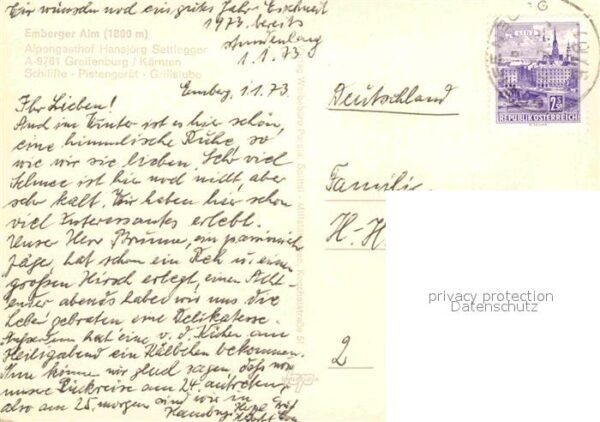 Wir wünschen noch ein gutes Jahr! Es schneit
1973 bereits
stundenlang
1.1.73
Emberger Alm (1800 m)
Alpengasthof Hansjörg Sattlegger
A-9761 Greifenburg / Kärnten
Schilifte - Pistengerät - Grillstube
Emberg, 1.1.73
Ihr Lieben!
Auch im Winter ist es hier schön,
eine himmlische Ruhe, so
wie wir sie lieben. Sehr viel
Schnee ist hier noch nicht, aber
sehr kalt. Wir haben hier schon
viel Interessantes erlebt.
Unser Herr Brunne, ein
Jäger, hat schon ein Reh u. einen
großen Hirsch erlegt, einen
abends haben wir uns die
Leber gebraten eine Delikatesse.
Außerdem hat eine v. d. Kühen am
Heiligabend ein Kälbchen bekommen.
Nun können wir glud sagen, daß wir
unsere Rückreise am 24. antreten,
also am 25. morgen sind wir in
Hamburg.
Deutschland
Familie
H-H
2
REPUBLIK ÖSTERREICH
privacy protection
Datenschutz